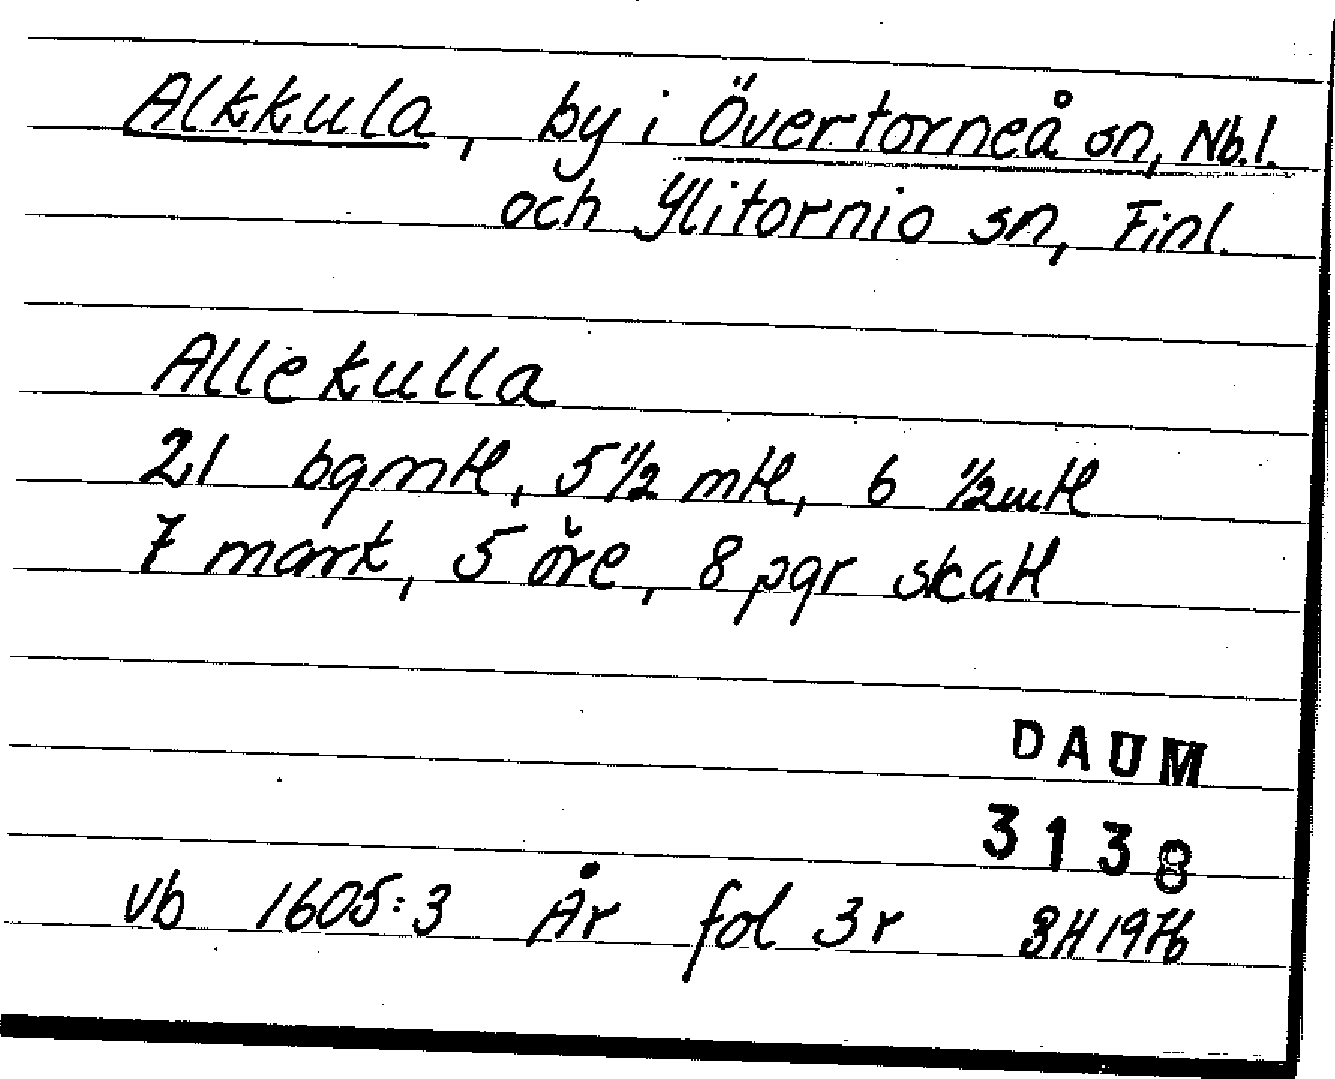 Alkkula, by i Övertorneå sn, Nb.l.
och Ylitornio sn, Finl.
Allekulla
21 bqmtl, 5 1/2 mtl, 6 1/2mtl
7 mark, 5 öre, 8 pqr skatt
DAUM
3138
Vb 1605:3 År fol 3r BH 1976